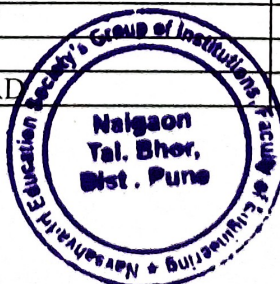 Navsahyadri Education Society's Group of Institutions, Faculty of Engineering *
Naigaon
Tal. Bhor,
Dist. Pune